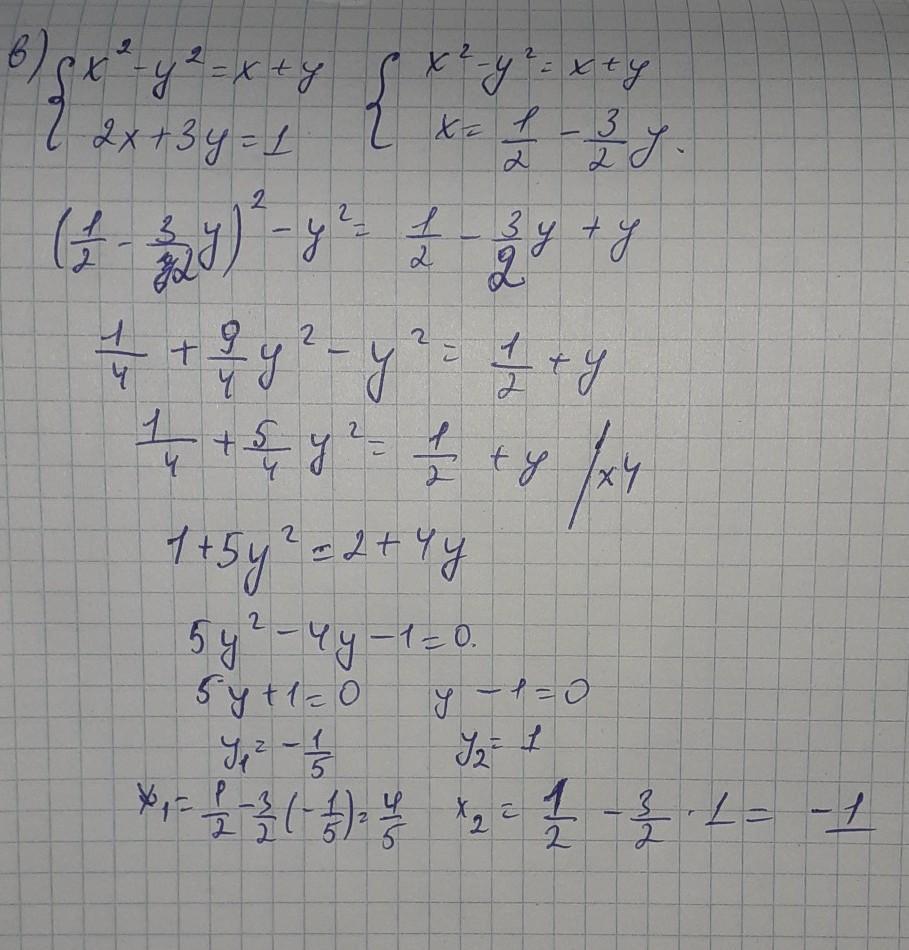 в) { x² - y² = x + y { x² - y² = x + y
2x + 3y = 1 x = 1/2 - 3/2 y.
(1/2 - 3/2 y)² - y² = 1/2 - 3/2 y + y
1/4 + 9/4 y² - y² = 1/2 + y
1/4 + 5/4 y² = 1/2 + y /x4
1 + 5y² = 2 + 4y
5y² - 4y - 1 = 0.
5y + 1 = 0 y - 1 = 0
y₁ = - 1/5 y₂ = 1
x₁ = 1/2 - 3/2 (- 1/5) = 4/5 x₂ = 1/2 - 3/2 · 1 = - 1